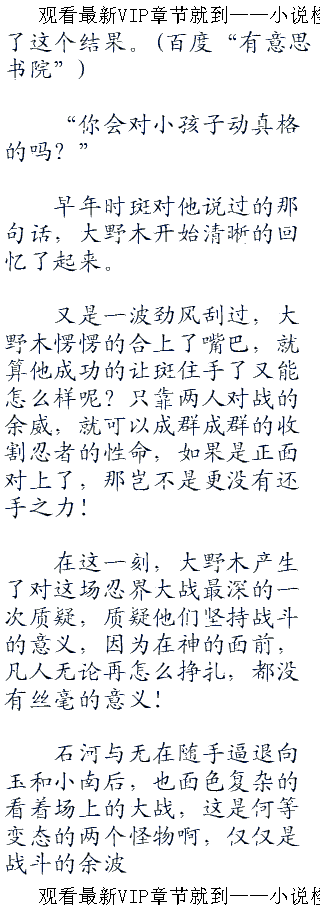 观看最新VIP章节就到——小说检
了这个结果。(百度“有意思
书院”)
“你会对小孩子动真格
的吗？”
早年时斑对他说过的那
句话，大野木开始清晰的回
忆了起来。
又是一波劲风刮过，大
野木愣愣的合上了嘴巴，就
算他成功的让斑住手了又能
怎么样呢？只靠两人对战的
余威，就可以成群成群的收
割忍者的性命，如果是正面
对上了，那岂不是更没有还
手之力！
在这一刻，大野木产生
了对这场忍界大战最深的一
次质疑，质疑他们坚持战斗
的意义，因为在神的面前，
凡人无论再怎么挣扎，都没
有丝毫的意义！
石河与无在随手逼退向
玉和小南后，也面色复杂的
看着场上的大战，这是何等
变态的两个怪物啊，仅仅是
战斗的余波
观看最新VIP章节就到——小说检